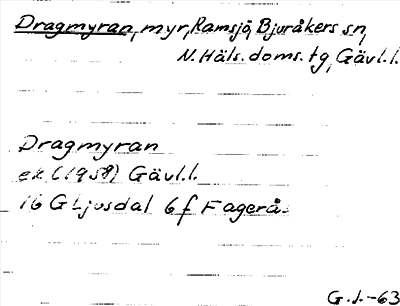 Dragmyran, myr, Ramsjö, Bjuråkers sn,
N. Häls. doms. tg, Gävl. l.
Dragmyran
ek (1958) Gävl. l.
16 G Ljusdal 6 f Fagerå.
G. J. -63